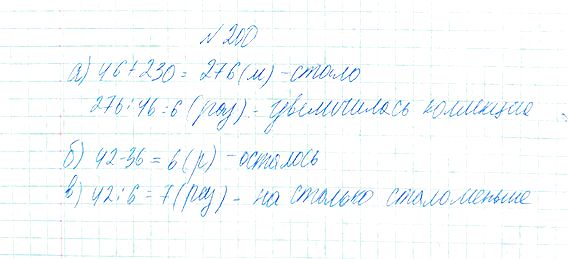 № 200
а) 46+230 = 276 (м) - стало
276:46 = 6 (раз) - увеличилась коллекция
б) 42-36 = 6 (р) - осталось
в) 42:6 = 7 (раз) - на столько стало меньше